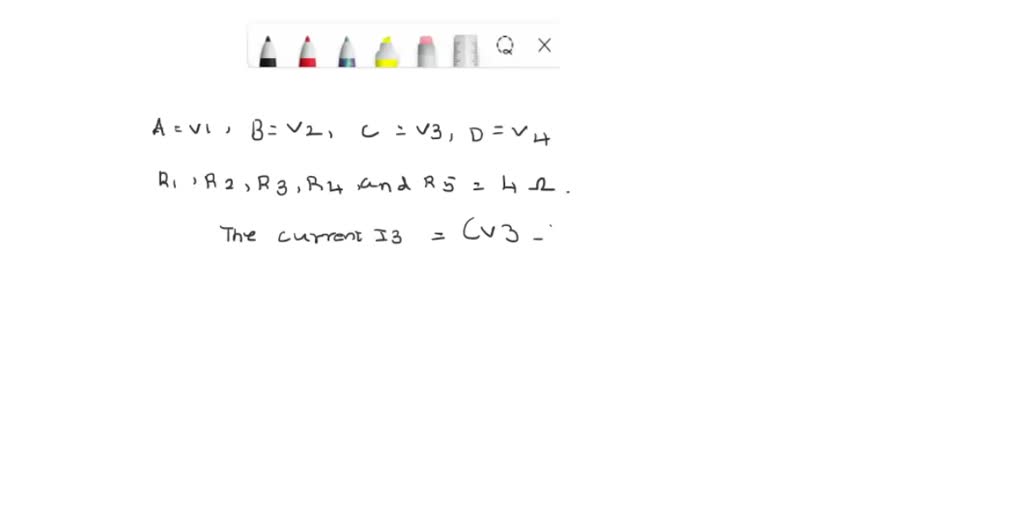 A = V1, B = V2, C = V3, D = V4
R1, R2, R3, R4 and R5 = 4 Ω.
The current I3 = (V3 -